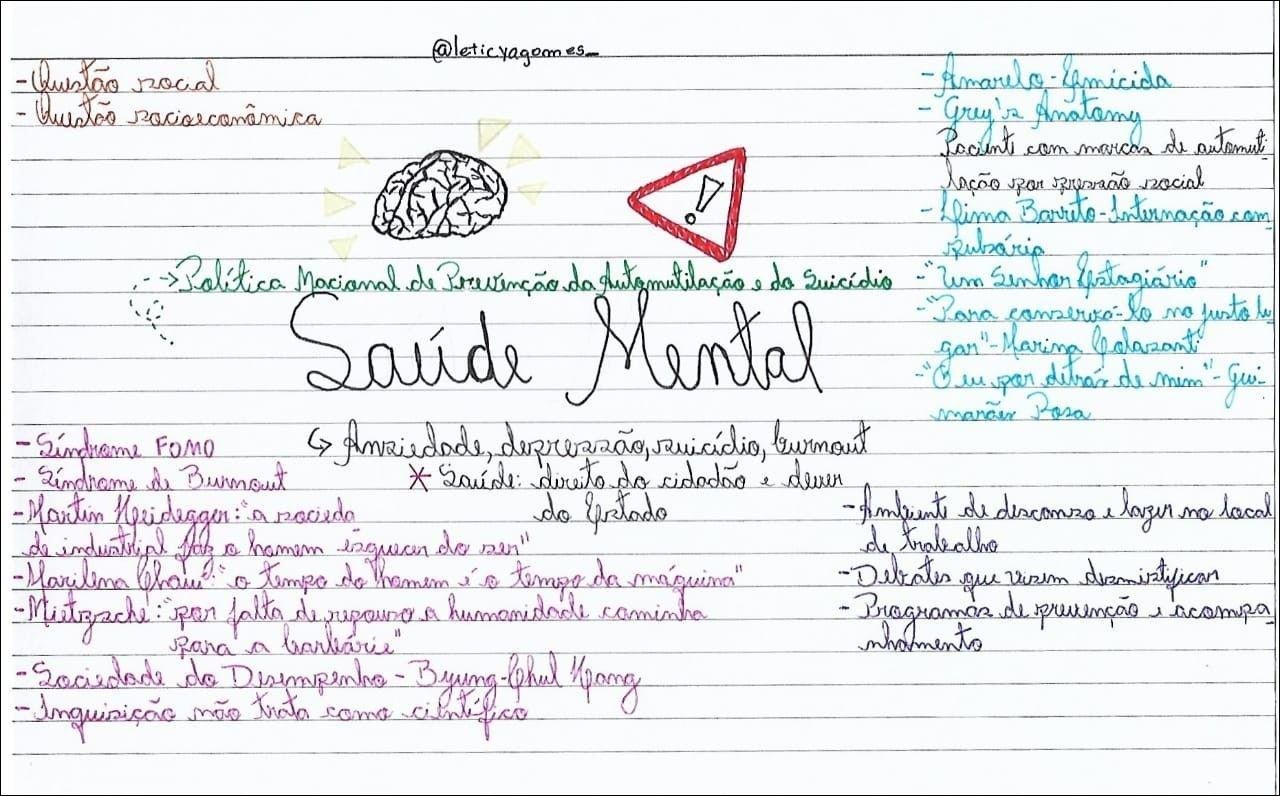 @leticyagomes_
- Questão social
- Questão socioeconômica
- Amarelo - Emicida
- Grey's Anatomy
Paciente com marcas de automuti
lação por pressão social
- Lima Barreto - Internação com
pulsória
- "Um Senhor Estagiário"
- "Para conservá-lo no justo lu
gar" - Marina Colasanti
- "O eu por detrás de mim" - Gui-
marães Rosa
--> Política Nacional de Prevenção da Automutilação e do Suicídio
Saúde Mental
↳ Ansiedade, depressão, suicídio, burnout
* Saúde: direito do cidadão e dever
do Estado
- Síndrome FOMO
- Síndrome de Burnout
- Martin Heidegger: "a socieda
de industrial faz o homem esquecer do ser"
- Marilena Chaui: "o tempo do homem é o tempo da máquina"
- Nietzsche: "por falta de repouso a humanidade caminha
para a barbárie"
- Sociedade do Desempenho - Byung-Chul Hang
- Inquisição não trata como científico
- Ambiente de descanso e lazer no local
de trabalho
- Debates que visem desmistificar
- Programas de prevenção e acompa-
nhamento